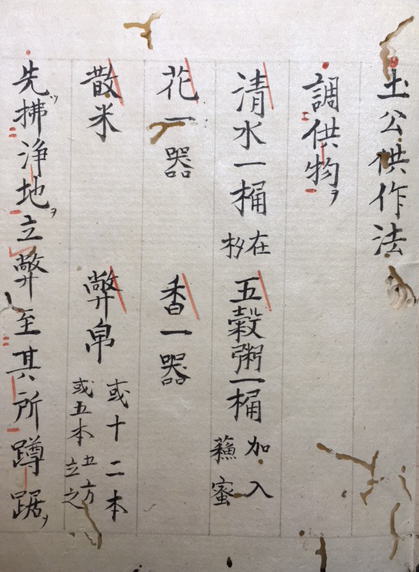 土公供作法
調供物ヲ
清水一桶 在杓 五穀粥一桶 加入蘓蜜
花一器 香一器
散米 弊帛 或十二本或五本五方立之
先拂浄地ヲ立弊至其所蹲踞